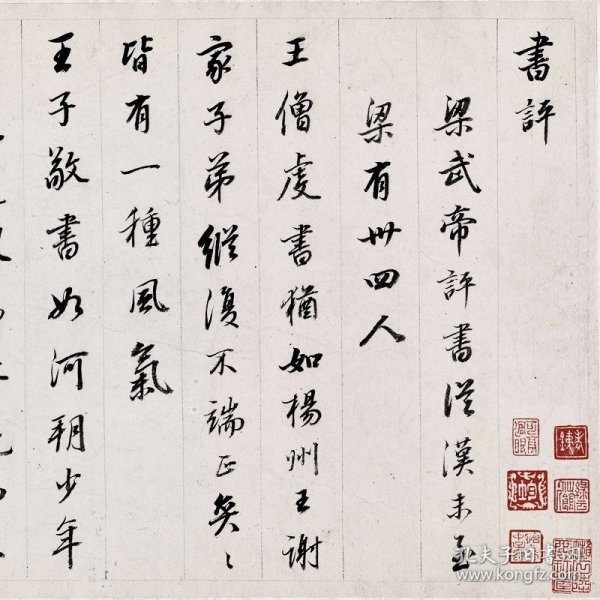 書評
梁武帝評書從漢末至
梁有卅四人
王僧虔書猶如楊州王謝
家子弟縱復不端正奕〻
皆有一種風氣
王子敬書如河朔少年
孔夫子旧书网
www.kongfz.com